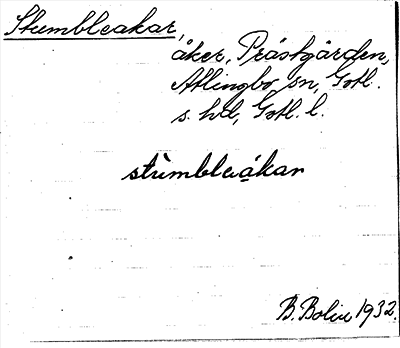 Stumbleakar,
åker, Prästgården,
Atlingbo sn, Gotl.
s. hd, Gotl. l.
stùmbleákar
B. Bolin 1932.